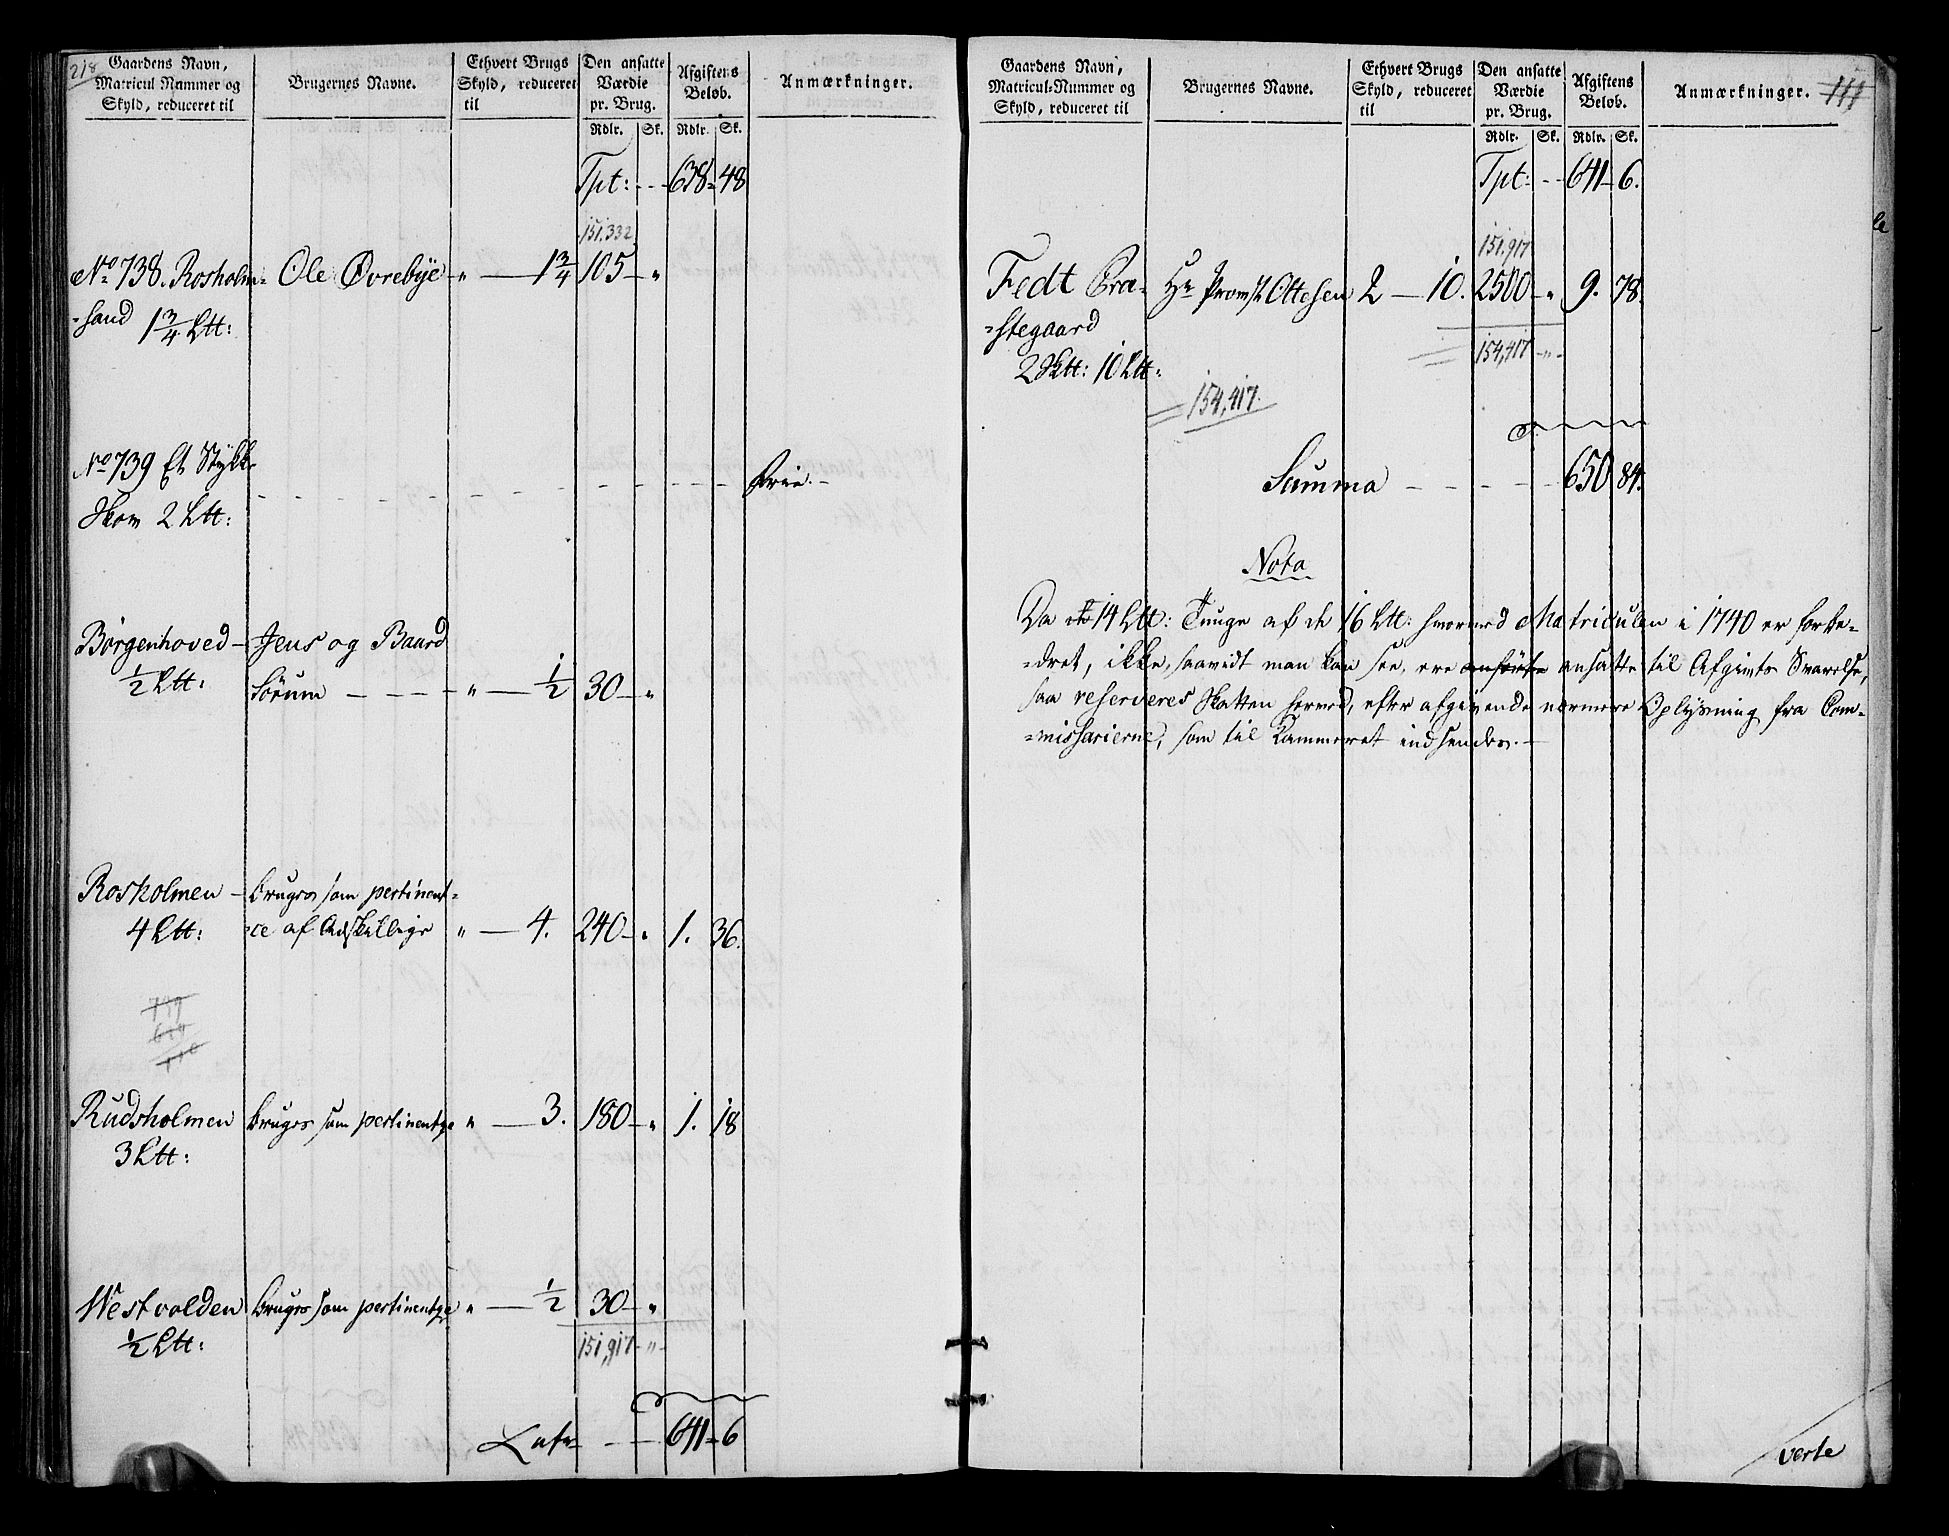 218
Gaardens Navn,
Matricul Nummer og
Skyld, reduceret til
Brugernes Navne.
Ethvert Brugs
Skyld, reduceret
til
Den ansatte
Værdie
pr. Brug.
Rdlr. Sk.
Afgiftens
Beløb.
Rdlr. Sk.
Anmærkninger.
Tpt: - - 638 - 48
151,332
No 738. Rosholm- Ole Øvrebÿe " — 1 3/4 105 - "
-sand 1 3/4 Ltt:
No 739 Et Stÿkke
Skov 2 Ltt: - - - - - Frie. -
Børgenhoved - Jens og Baard
1/2 Ltt: Sørum - - - " — 1/2 30 - "
Rosholmen - bruges som pertinent-
4 Ltt: -ce af Adskillige " — 4. 240 - " 1. 36.
Rudsholmen bruges som pertinentze " — 3. 180 - " 1. 18
3 Ltt:
Westvolden bruges som pertinentze " — 1/2 30 - "
1/2 Ltt: 151,917 - "
Lats - - 641 - 6
111
Gaardens Navn,
Matricul-Nummer og
Skyld, reduceret til
Brugernes Navne.
Ethvert Brugs
Skyld, reduceret
til
Den ansatte
Værdie
pr. Brug.
Rdlr. Sk.
Afgiftens
Beløb.
Rdlr. Sk.
Anmærkninger.
Tpt: - - 641 - 6.
151,917
Fedt Præ- Hr Provst Ottesen 2 — 10. 2500 - " 9. 78.
-stegaard
2 Sktt: 10 Ltt: 154,417 - " -
154,417.
Summa - - - - 650 84.
Nota
Da 14 Ltt: Tunge af de 16 Ltt: hvormed Matriculen i 1740 er forbe-
-dret, ikke, saavidt man kan see, ere anførte ansatte til Afgivts Svarelse,
saa reserveres Skatten herved, efter afgivende nærmere Oplÿsning fra Com-
-missairerne, som til Kammeret indsendes. -
verte